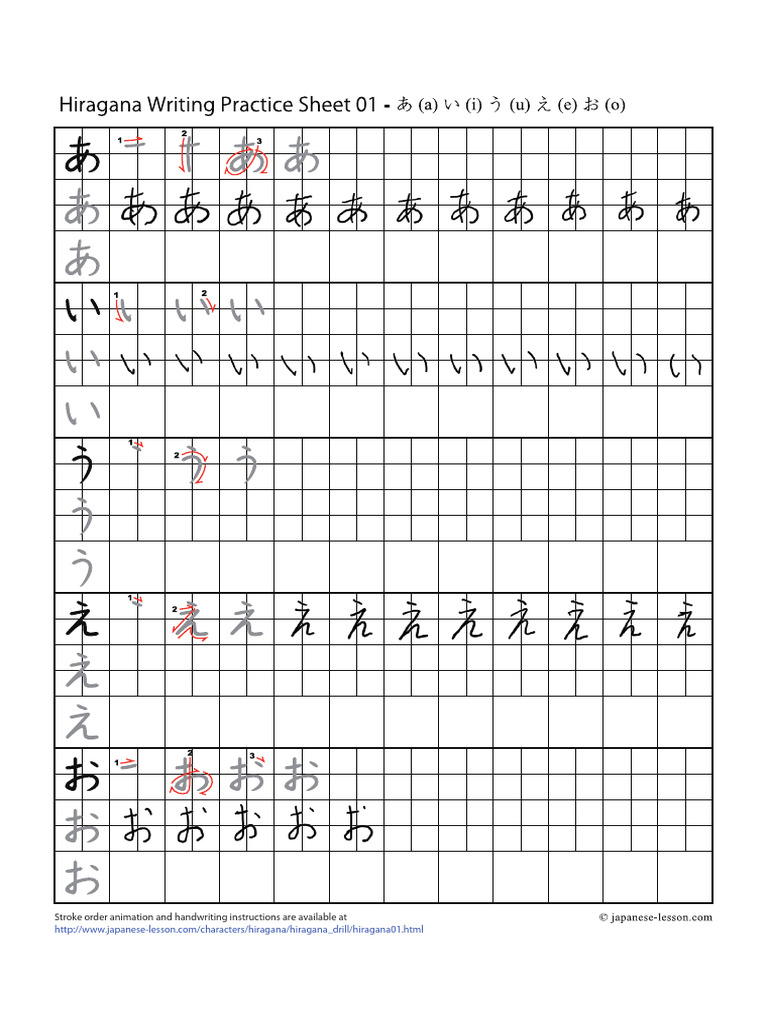 Hiragana Writing Practice Sheet 01 - あ (a) い (i) う (u) え (e) お (o)
あ 1 2 3 あ あ
あ あ あ あ あ あ あ あ あ あ あ あ
あ
い 1 2 い い
い い い い い い い い い い い い
い
う 1 2 う う
う
う
え 1 2 え え え え え え え え え え
え
え
お 1 2 3 お お
お お お お お お
お
Stroke order animation and handwriting instructions are available at
© japanese-lesson.com
http://www.japanese-lesson.com/characters/hiragana/hiragana_drill/hiragana01.html